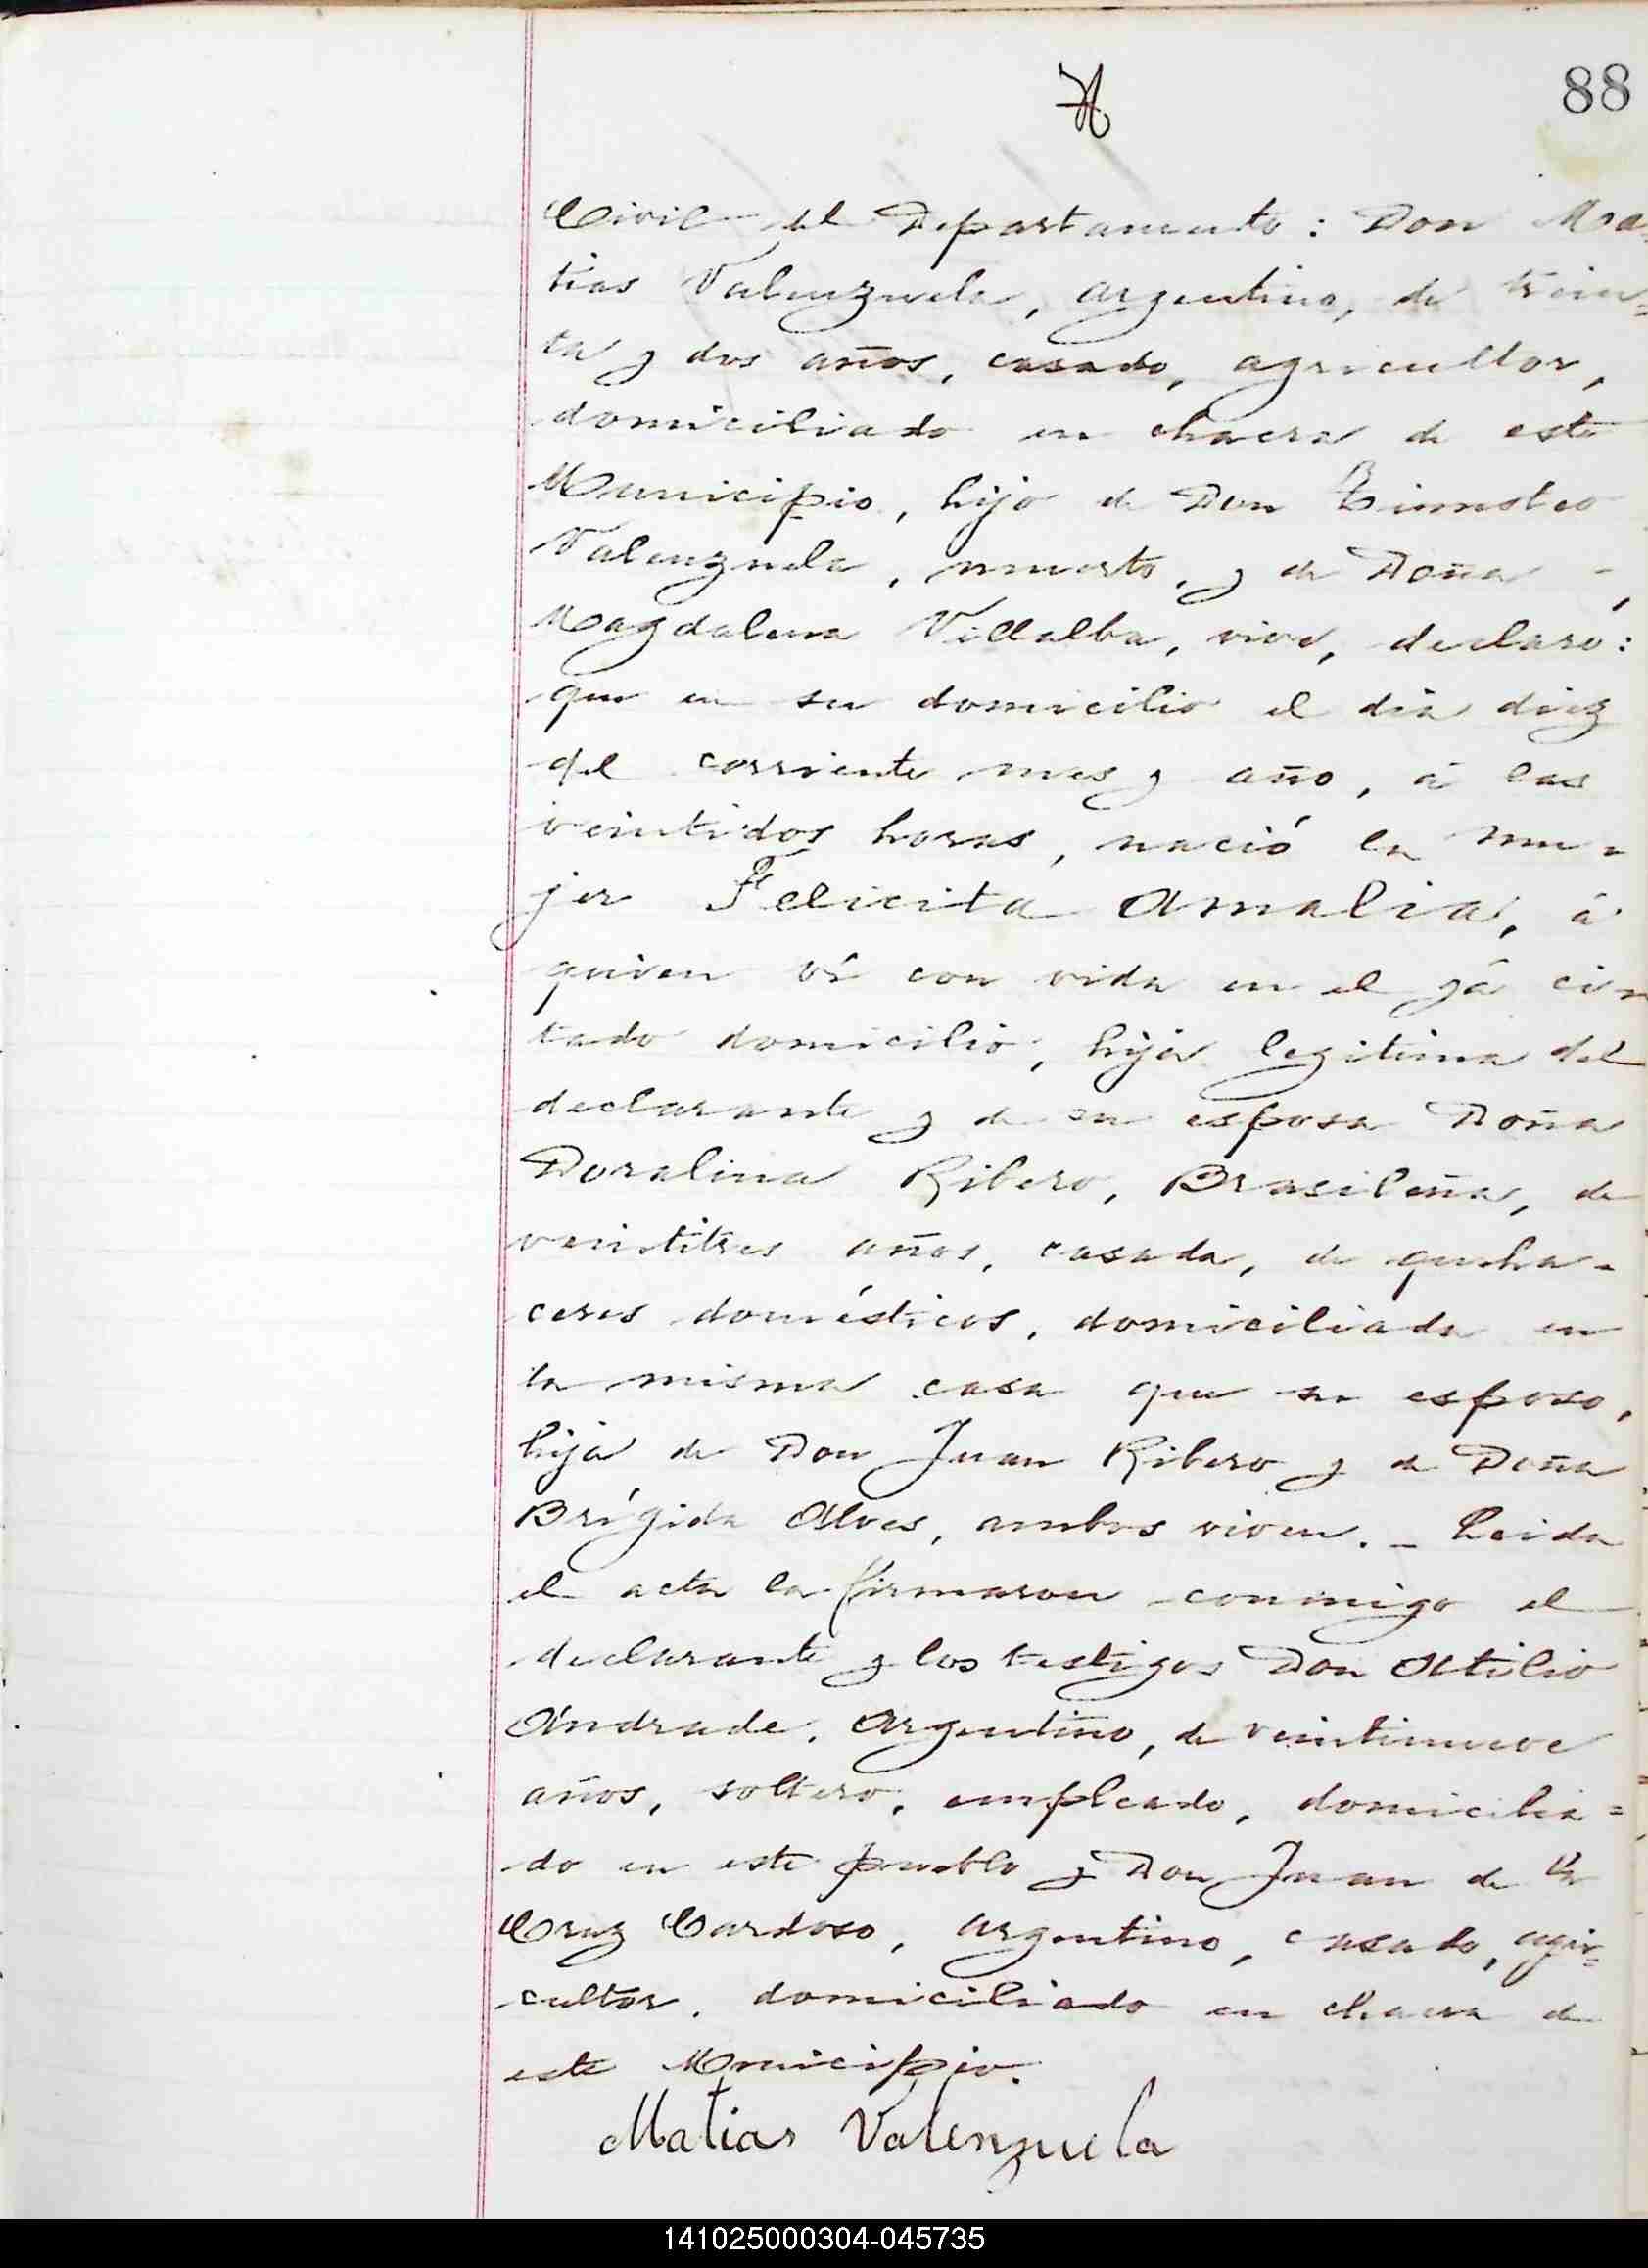 88
Civil del Departamento: Don Ma-
tias Valenzuela, argentino, de trein=
ta y dos años, casado, agricultor,
domiciliado en chacra de este
Municipio, hijo de Don Timoteo
Valenzuela, muerto, y de Doña -
Magdalena Villalba, vive, declaró:
que en su domicilio el dia diez
del corriente mes y año, á las
veintidos horas, nació la mu=
jer Felicita Amalia, á
quien ví con vida en el yá ci=
tado domicilio, hija legitima del
declarante y de su esposa Doña
Doralina Ribero, Brasileña, de
veintitres años, casada, de queha=
ceres domésticos, domiciliada en
la misma casa que su esposo,
hija de Don Juan Ribero y de Doña
Brígida Alves, ambos viven. _ Leida
el acta la firmaron conmigo el
declarante y los testigos Don Atilio
Andrade, Argentino, de veintinueve
años, soltero, empleado, domicilia=
do en este pueblo y Don Juan de la
Cruz Cardoso, argentino, casado, agri=
cultor, domiciliado en chacra de
este Municipio.
Matias Valenzuela
141025000304-045735